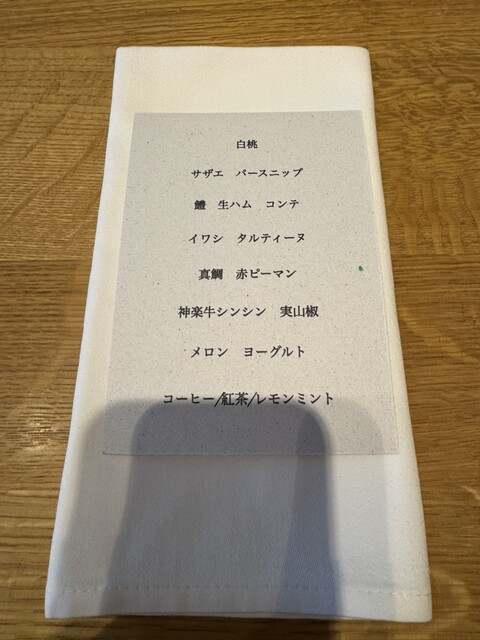 白桃
サザエ　パースニップ
鱧　生ハム　コンテ
イワシ　タルティーヌ
真鯛　赤ピーマン
神楽牛シンシン　実山椒
メロン　ヨーグルト
コーヒー/紅茶/レモンミント